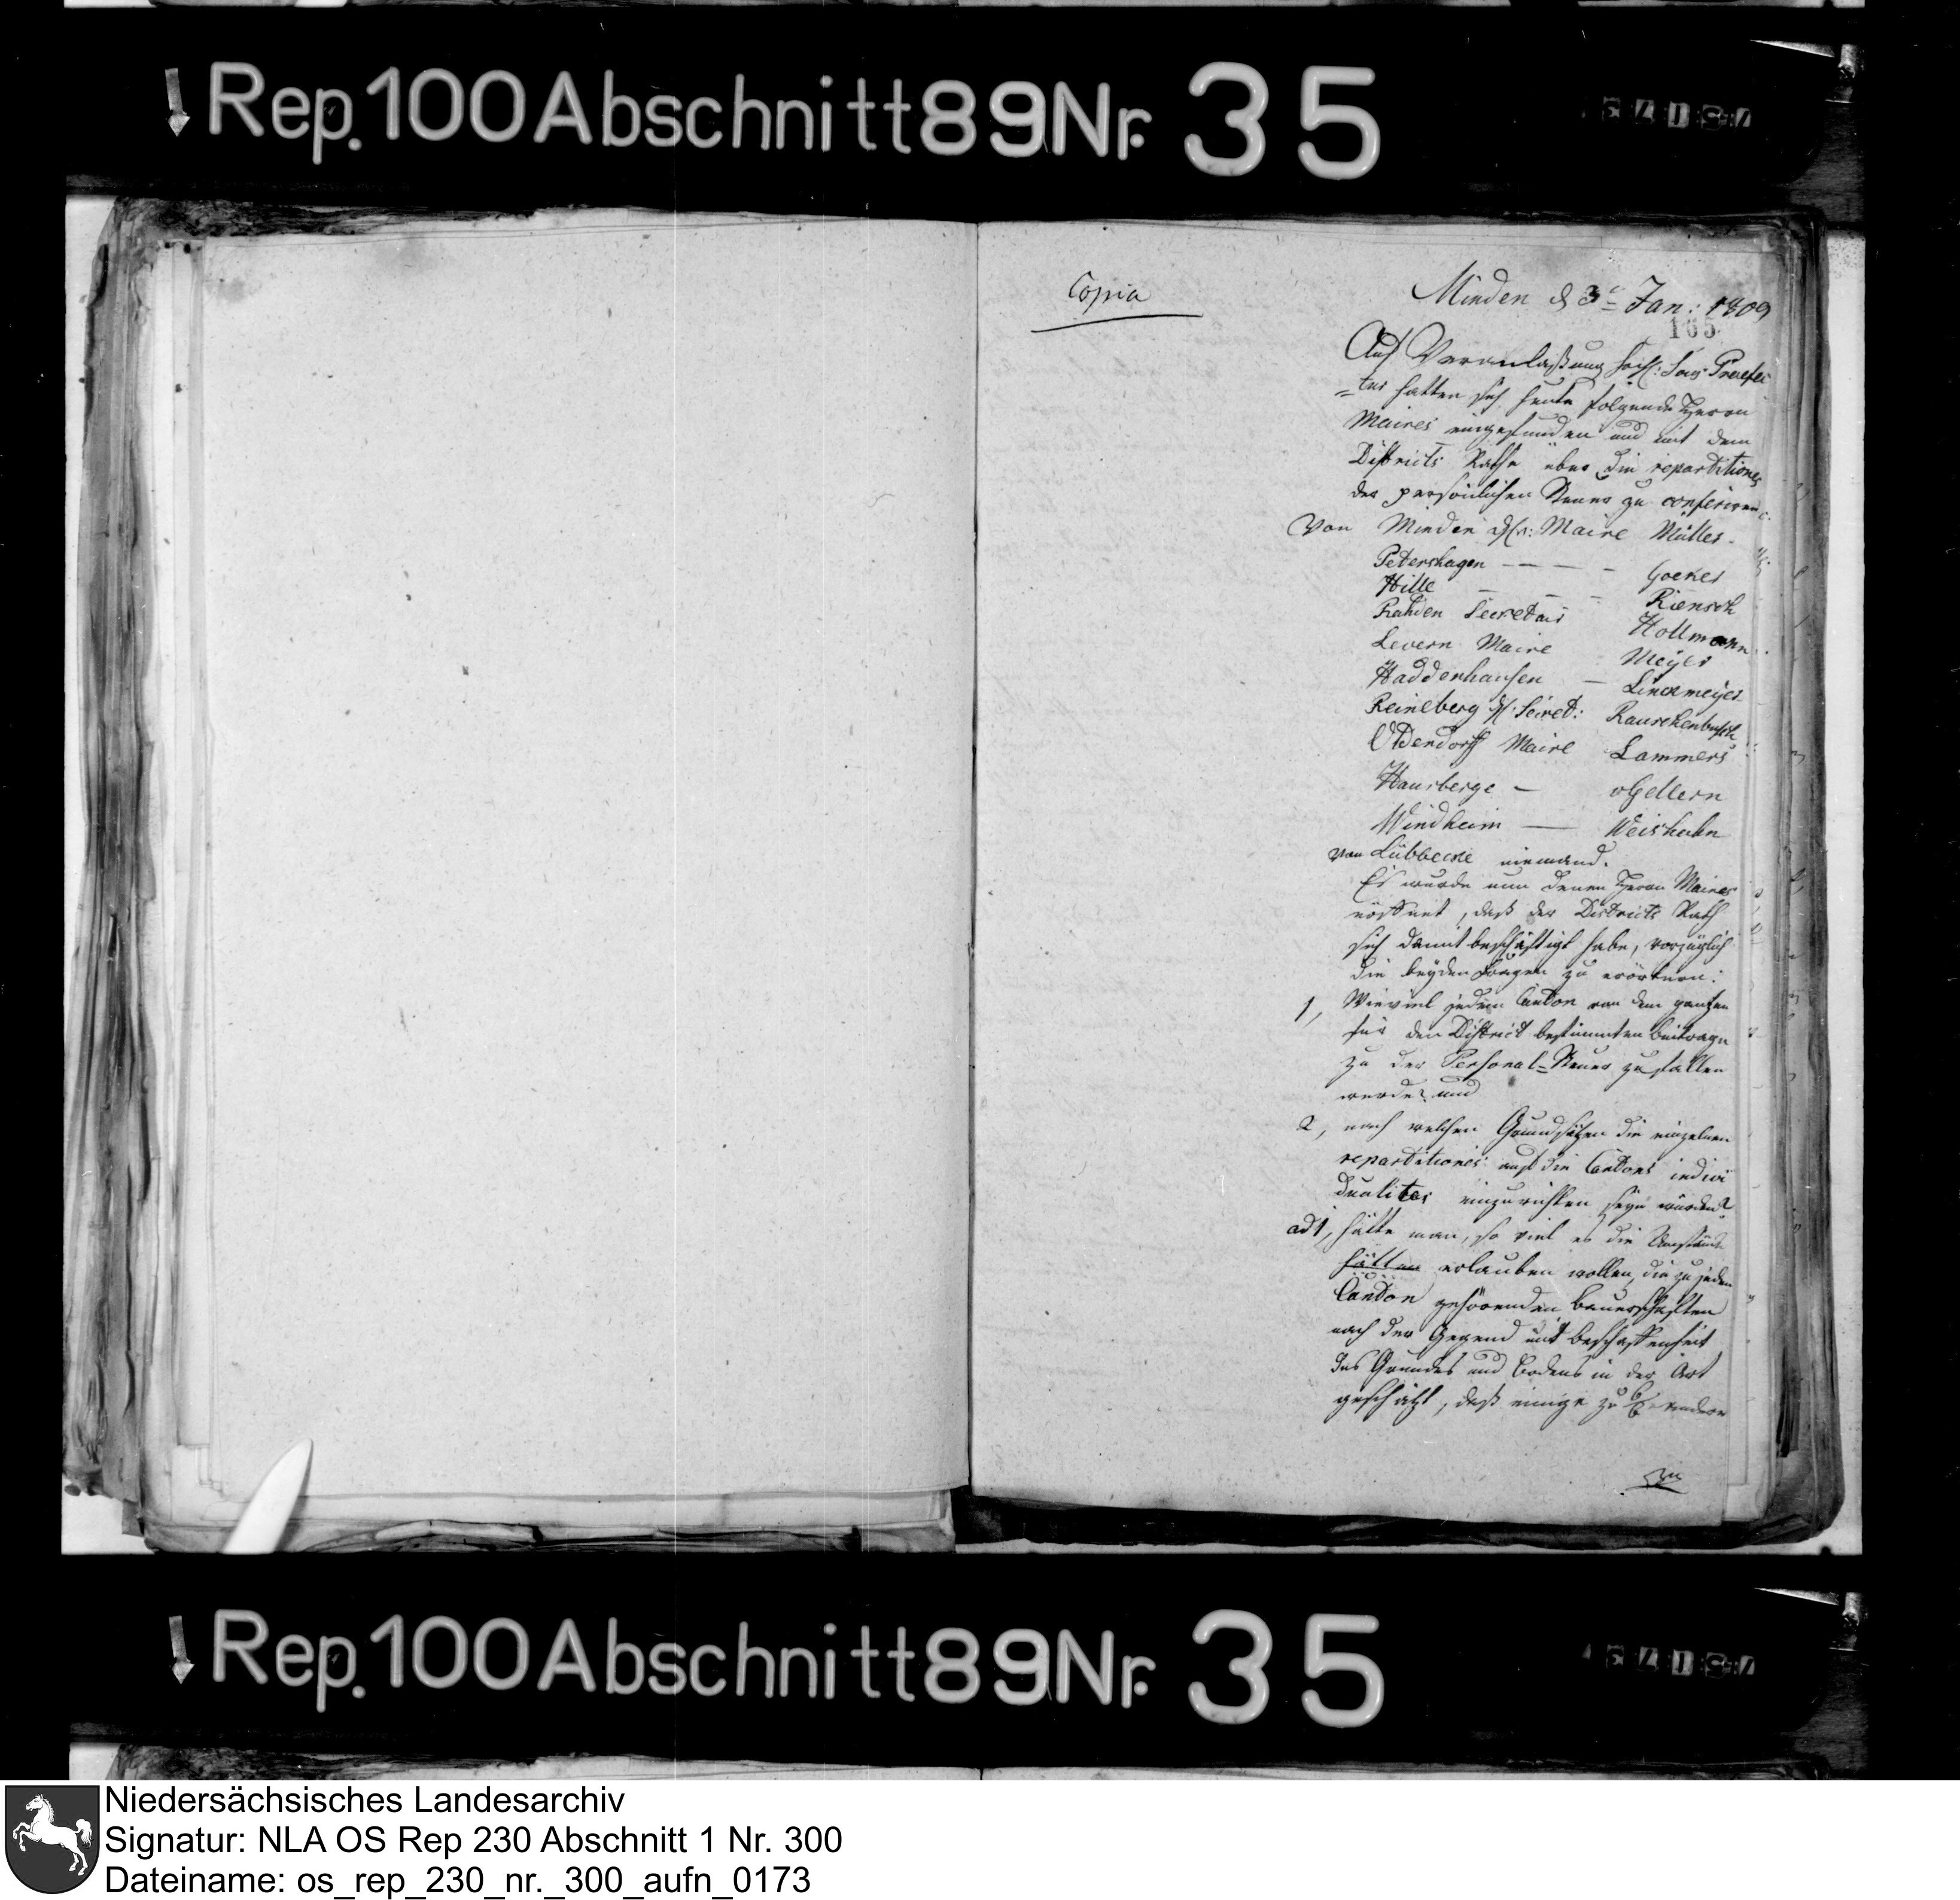 Rep. 100 Abschnitt 89 Nr. 35
Copia
Minden d 3t Jan: 1809
165
Auf Veranlaßung Praefec
=tur hatten sich heute folgende Herren
Maires eingefunden und mit dem
Districts Rathe über die repartitiones
der persönlichen Steuer zu conferiren
Von Minden Hr: Maire Müller.
Petershagen - - - - Goeker
Hille - - - Riensch
Rahden Secretair Hollmann
Levern Maire Meyer
Haddenhausen - Linckmeyer
Reineberg H: Secret: Rauschenbusch
Oldendorff Maire Lammers
Hausberge - vGellern
Windheim - Weishuhn
von Lübbecke niemand.
Es wurde nun denen Herren Maires
eröffnet, daß der Districts Rath
sich damit beschäftigt habe, vorzüglich
die beyden Fragen zu erörtern:
1, Wieviel jedem Canton von dem ganzen
für den District bestimmten Beitrage
zu der Personal-Steuer zufallen
werde? und
2, nach welchen Grundsätzen die einzelnen
repartitiones auf die Cantons indivi
dualiter einzurichten seyn würden?
ad 1, hätte man, so viel es die Umstände
hätten erlauben wollen, die zu jedem
Canton gehörenden Bauerschaften
nach der Gegend und Beschaffenheit
des Grundes und Bodens in der Art
geschätzt, daß einige zu 6/6 andere
Rep. 100 Abschnitt 89 Nr. 35
Niedersächsisches Landesarchiv
Signatur: NLA OS Rep 230 Abschnitt 1 Nr. 300
Dateiname: os_rep_230_nr._300_aufn_0173